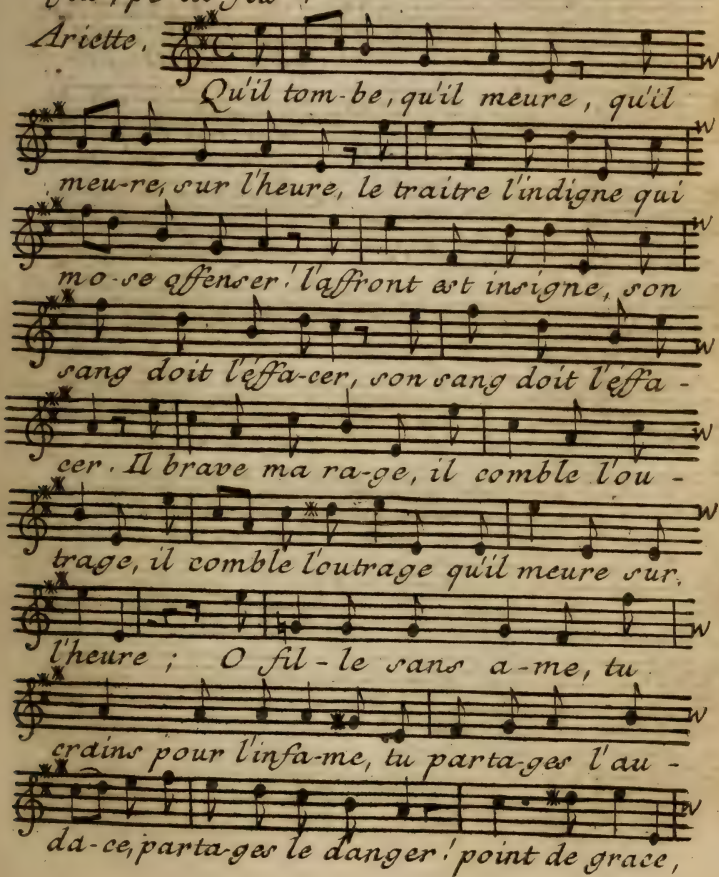 Ariette.
Qu'il tom-be, qu'il meure, qu'il
meu-re, sur l'heure, le traitre l'indigne qui
mo-se offenser! l'affront est insigne, son
sang doit l'éffa-cer, son sang doit l'éffa-
cer. Il brave ma ra-ge, il comble l'ou-
trage, il comble l'outrage qu'il meure sur.
l'heure; O fil-le sans a-me, tu
crains pour l'infa-me, tu parta-ges l'au-
da-ce, parta-ges le danger! point de grace,